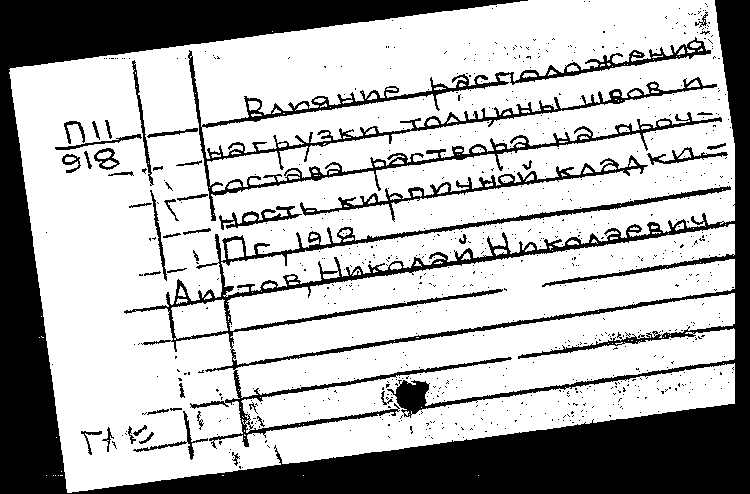 Влияние расположения
П11
918
нагрузки, толщины швов и
состава раствора на проч-
ность кирпичной кладки.=
Пг., 1918.
Аистов, Николай Николаевич